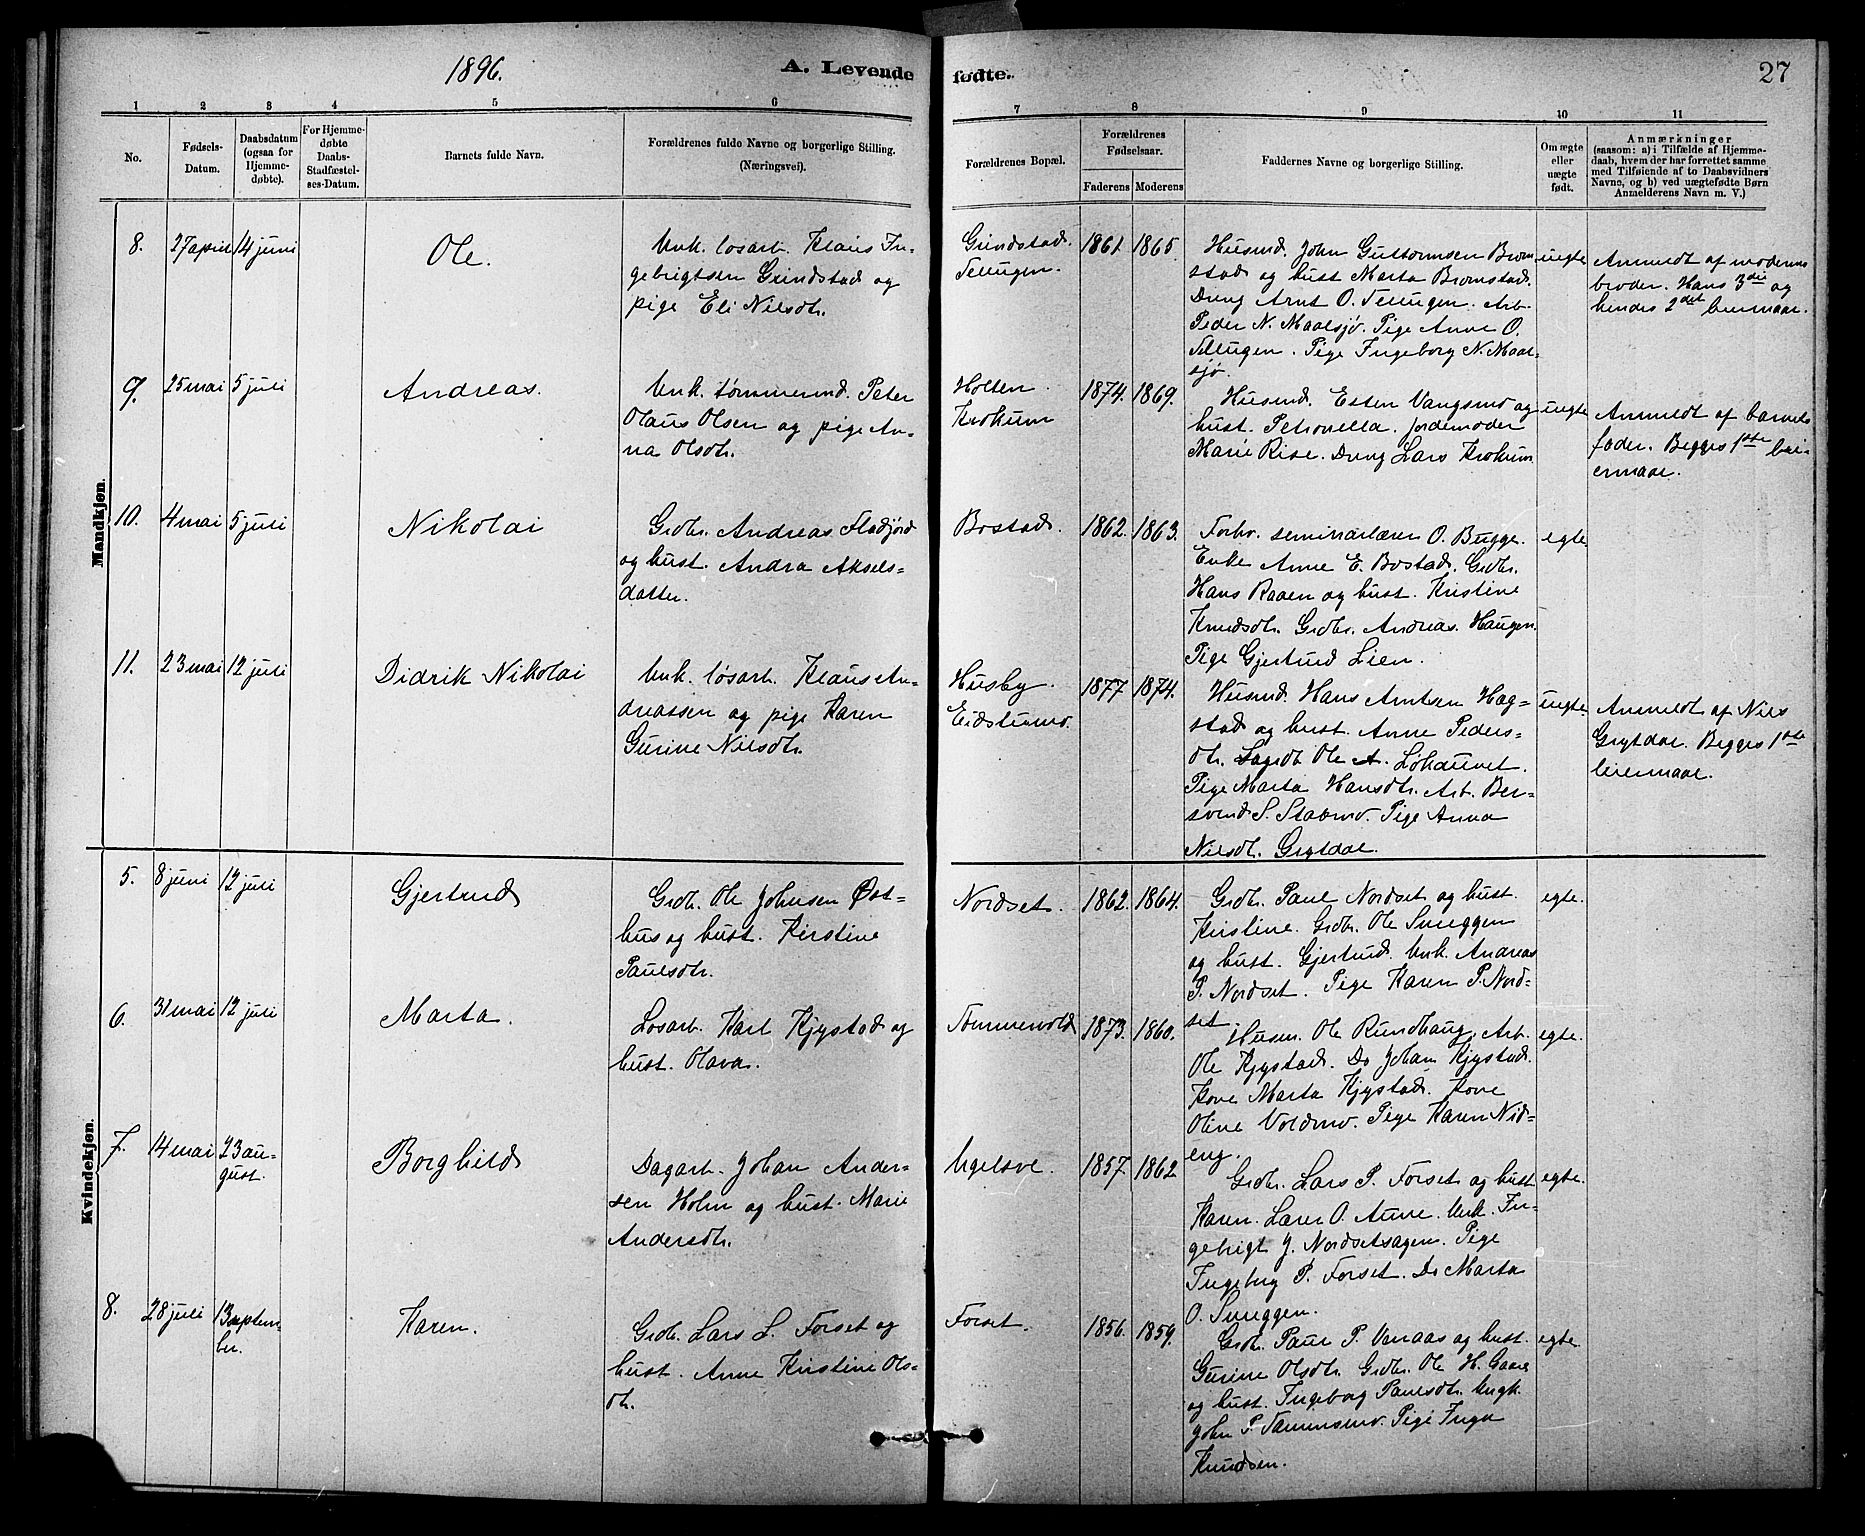 1896.
A. Levende
fødte.
27
1
2
3
4
5
6
7
8
9
10
11
No.
Fødsels-
Datum.
Daabsdatum
(ogsaa for
Hjemme-
døbte).
For Hjemme-
døbte
Daabs-
Stadfæstel-
ses-Datum.
Barnets fulde Navn.
Forældrenes fulde Navne og borgerlige Stilling.
(Næringsvei).
Forældrenes Bopæl.
Forældrenes
Fødselsaar.
Faderens
Moderens
Faddernes Navne og borgerlige Stilling.
Om ægte
eller
uægte
født.
Anmærkninger
(saasom: a) i Tilfælde af Hjemme-
daab, hvem der har forrettet samme
med Tilføiende af to Daabsvidners
Navne, og b) ved uægtefødte Børn
Anmelderens Navn m. V.)
Mandkjøn.
8.
27 april
14 juni
Ole.
Unk. løsarb. Klaus In-
gebrigtsen Grindstad og
pige Eli Nilsdtr.
Grindstad.
1861.
1865.
Husmd. John Guttormsen Brom-
stad og hust. Marta Bromstad.
Dreng Arnt O. Arb.
Peder N. Maalsjø. Pige Anne O.
Pige Ingeborg N. Maal-
sjø.
uegte
Anmeldt af moderens
broder. Hans 3die og
hendes 2det leiermaal.
9.
25 mai
5 juli
Andreas.
Unk. tømmermd. Peter
Olaus Olsen og pige An-
na Olsdtr.
Holten
Krokum
1874.
1869.
Husmd. Esten Vangsmo og
hust. Petronella. jordemoder
Marie Rise. Dreng Lars Krokum
uegte
Anmeldt af barnets
fader. Begges 1ste lei-
ermaal.
10.
4 mai
5 juli
Nikolai
Grdbr. Andreas Fladjord
og hust. Andrea Aksels-
datter.
Bostad.
1862.
1863.
Forhv. seminarlærer O. Bugge.
Enke Anne E. Bostad. Grdbr.
Hans Raaen og hust. Kristine
Knudsdtr. Grdbr. Andreas Haugen.
Pige Gjertrud Lien.
egte.
11.
23 mai
12 juli
Didrik Nikolai
Unk. løsarb. Klaus An-
dreassen og pige Karen
Gurine Nilsdtr.
Husby.
Eidstumo.
1877
1874.
Husmd. Hans Arntsen Hag-
stad og hust. Anne Peders-
dtr. Ole A. Løhauvet.
Pige Marta Hansdtr. Arb. Ber-
svend S. Stabmo. Pige Anna
Nilsdtr. Grytdal.
uegte.
Anmeldt af Nils
Grytdal. Begges 1ste
leiermaal.
Kvindekjøn.
5.
8 juni
12 juli
Gjertrud
Grdbr. Ole Johnsen Øst-
hus og hust. Kirstine
Paulsdtr.
Nordset.
1862.
1864.
Grdbr. Paul Nordset og hust.
Kirstine. Grdbr. Ole Sneggen
og hust. Gjertrud. Unk. Andreas
P. Nordset. Pige Karen P. Nord-
set.
egte.
6.
31 mai
12 juli
Marta.
Løsarb. Karl Kjystad og
hust. Olava.
Tommervold
1873.
1860.
Husm. Ole Rundhaug. Arb.
Ole Kjystad. Do Johan Kjystad.
Kone Marta Kjystad. Kone
Oline Voldmo. Pige Karen Nid-
eng.
egte.
7.
14 mai
23 au-
gust.
Borghild
Dagarb. Johan Ander-
sen Holm og hust. Marie
Andersdtr.
Ugelsve.
1857.
1862
Grdbr. Lars P. Forset og hust.
Karen. Lærer O. Aune. Unk. In-
gebrigt J. Nordsetsagen. Pige
Ingeborg P. Forset. Do Marta
O. Sneggen.
egte.
8.
28 juli
13 septem-
ber.
Karen.
Grdbr. Lars L. Forset og
hust. Anne Kirstine Ols-
dtr.
Forset.
1856.
1859.
Grdbr. Paul P. Vanaas og hust.
Gurine Olsdtr. Grdbr. Ole H. Gaare
og hust. Ingeborg Paulsdtr. Ungk.
John P. Pige Inga
Knudsen.
egte.